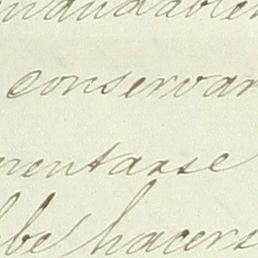 conservar
mentarse
be hacers